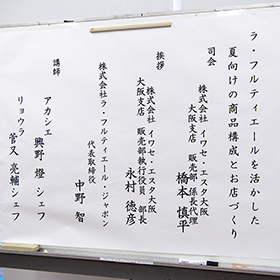 ラ・フルティエールを活かした
夏向けの商品構成とお店づくり
司会
株式会社 イワセ・エスタ大阪
大阪支店 販売部 係長代理
橋本 慎平
挨拶
株式会社 イワセ・エスタ大阪
大阪支店 販売部執行役員 部長
永村 徳彦
株式会社ラ・フルティエール・ジャポン
代表取締役
中野 智
講師
アカシエ 興野 燈 シェフ
リョウラ 菅又 亮輔 シェフ